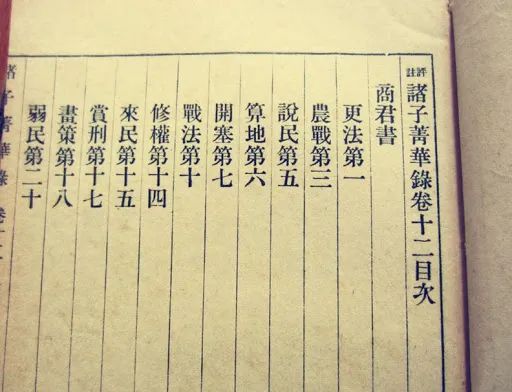 評註諸子菁華錄卷十二目次
商君書
更法第一
農戰第三
說民第五
算地第六
開塞第七
戰法第十
修權第十四
來民第十五
賞刑第十七
畫策第十八
弱民第二十
諸子菁華錄 卷十二